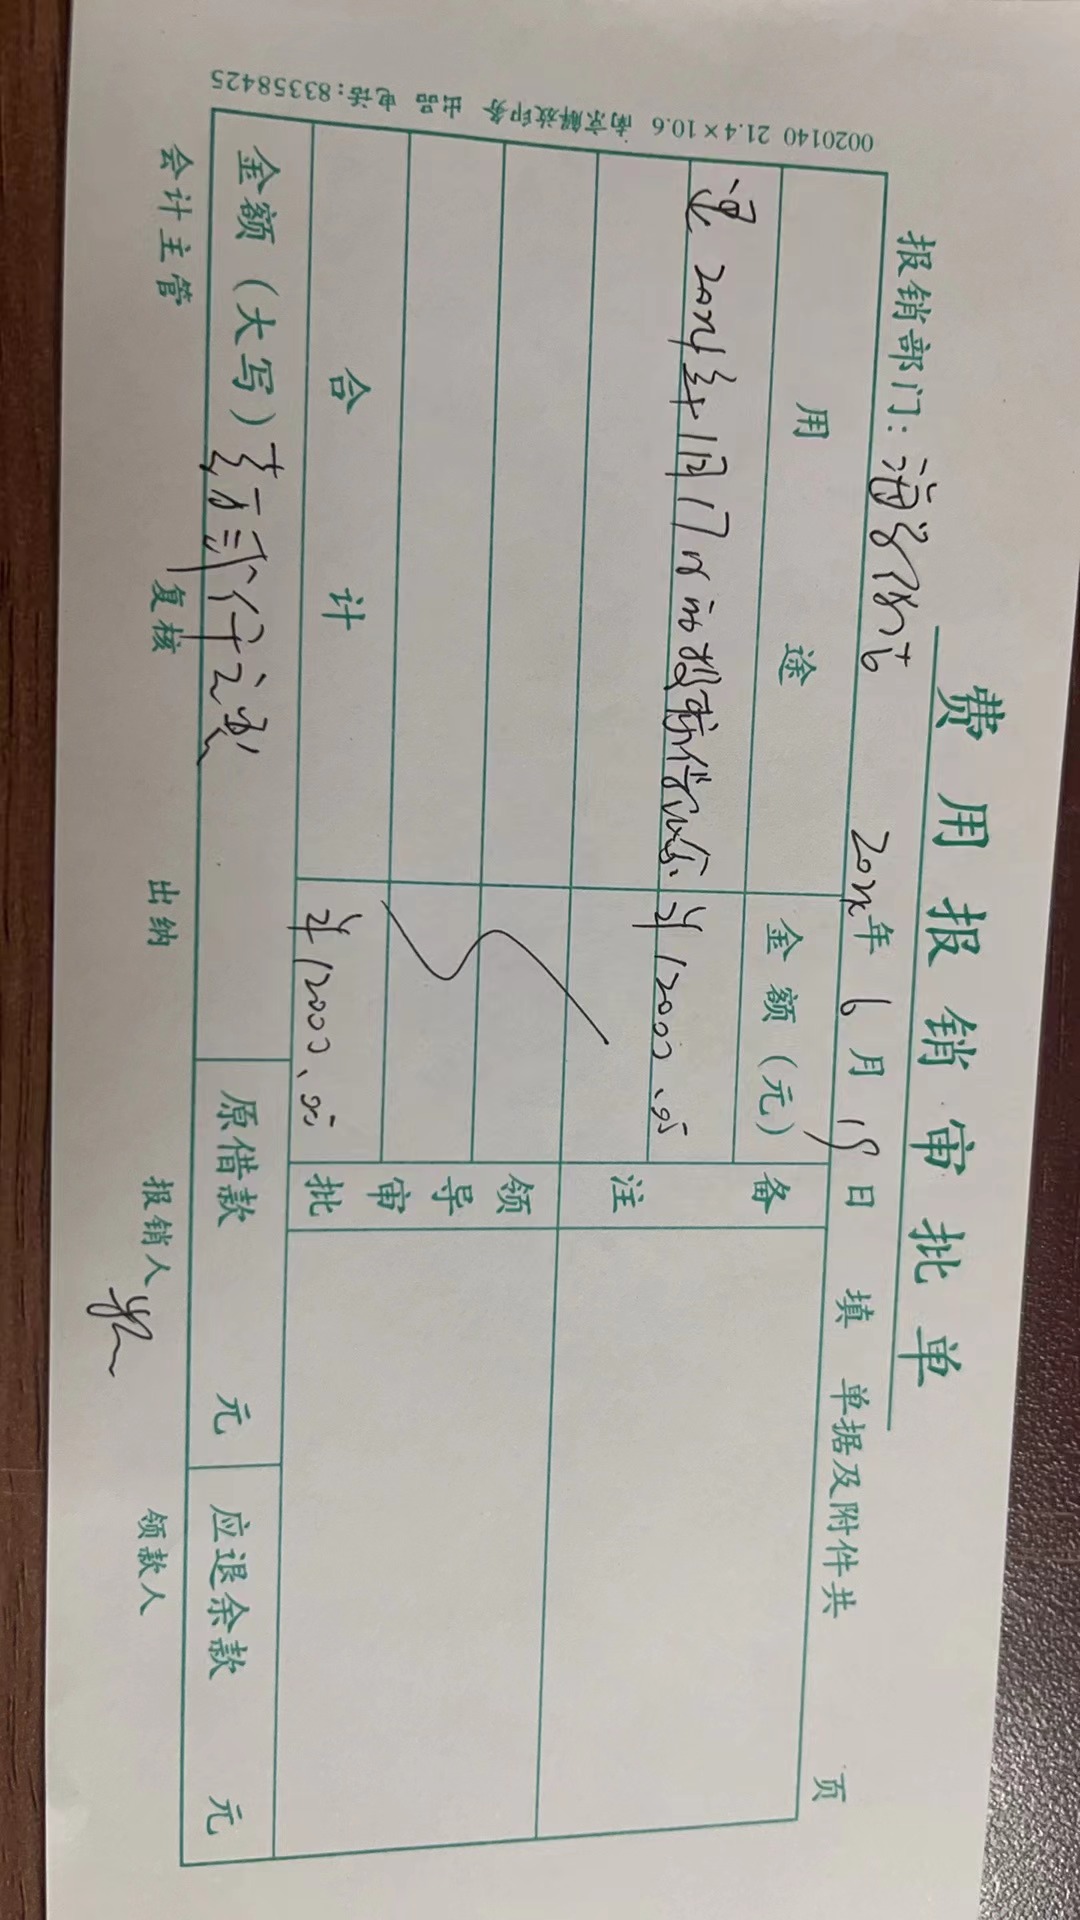 费用报销审批单
报销部门: 年 6 月 19 日 填 单据及附件共 页
用途 金额(元) 备注
退 2024年1月17日 投标保证金 ¥12000.00
领导审批
合计 ¥12000.00
金额(大写) 壹万贰仟元整 原借款 元 应退余款 元
会计主管 复核 出纳 报销人 领款人
0020140 21.4×10.6 南京解放印务 出品 电话:83358425